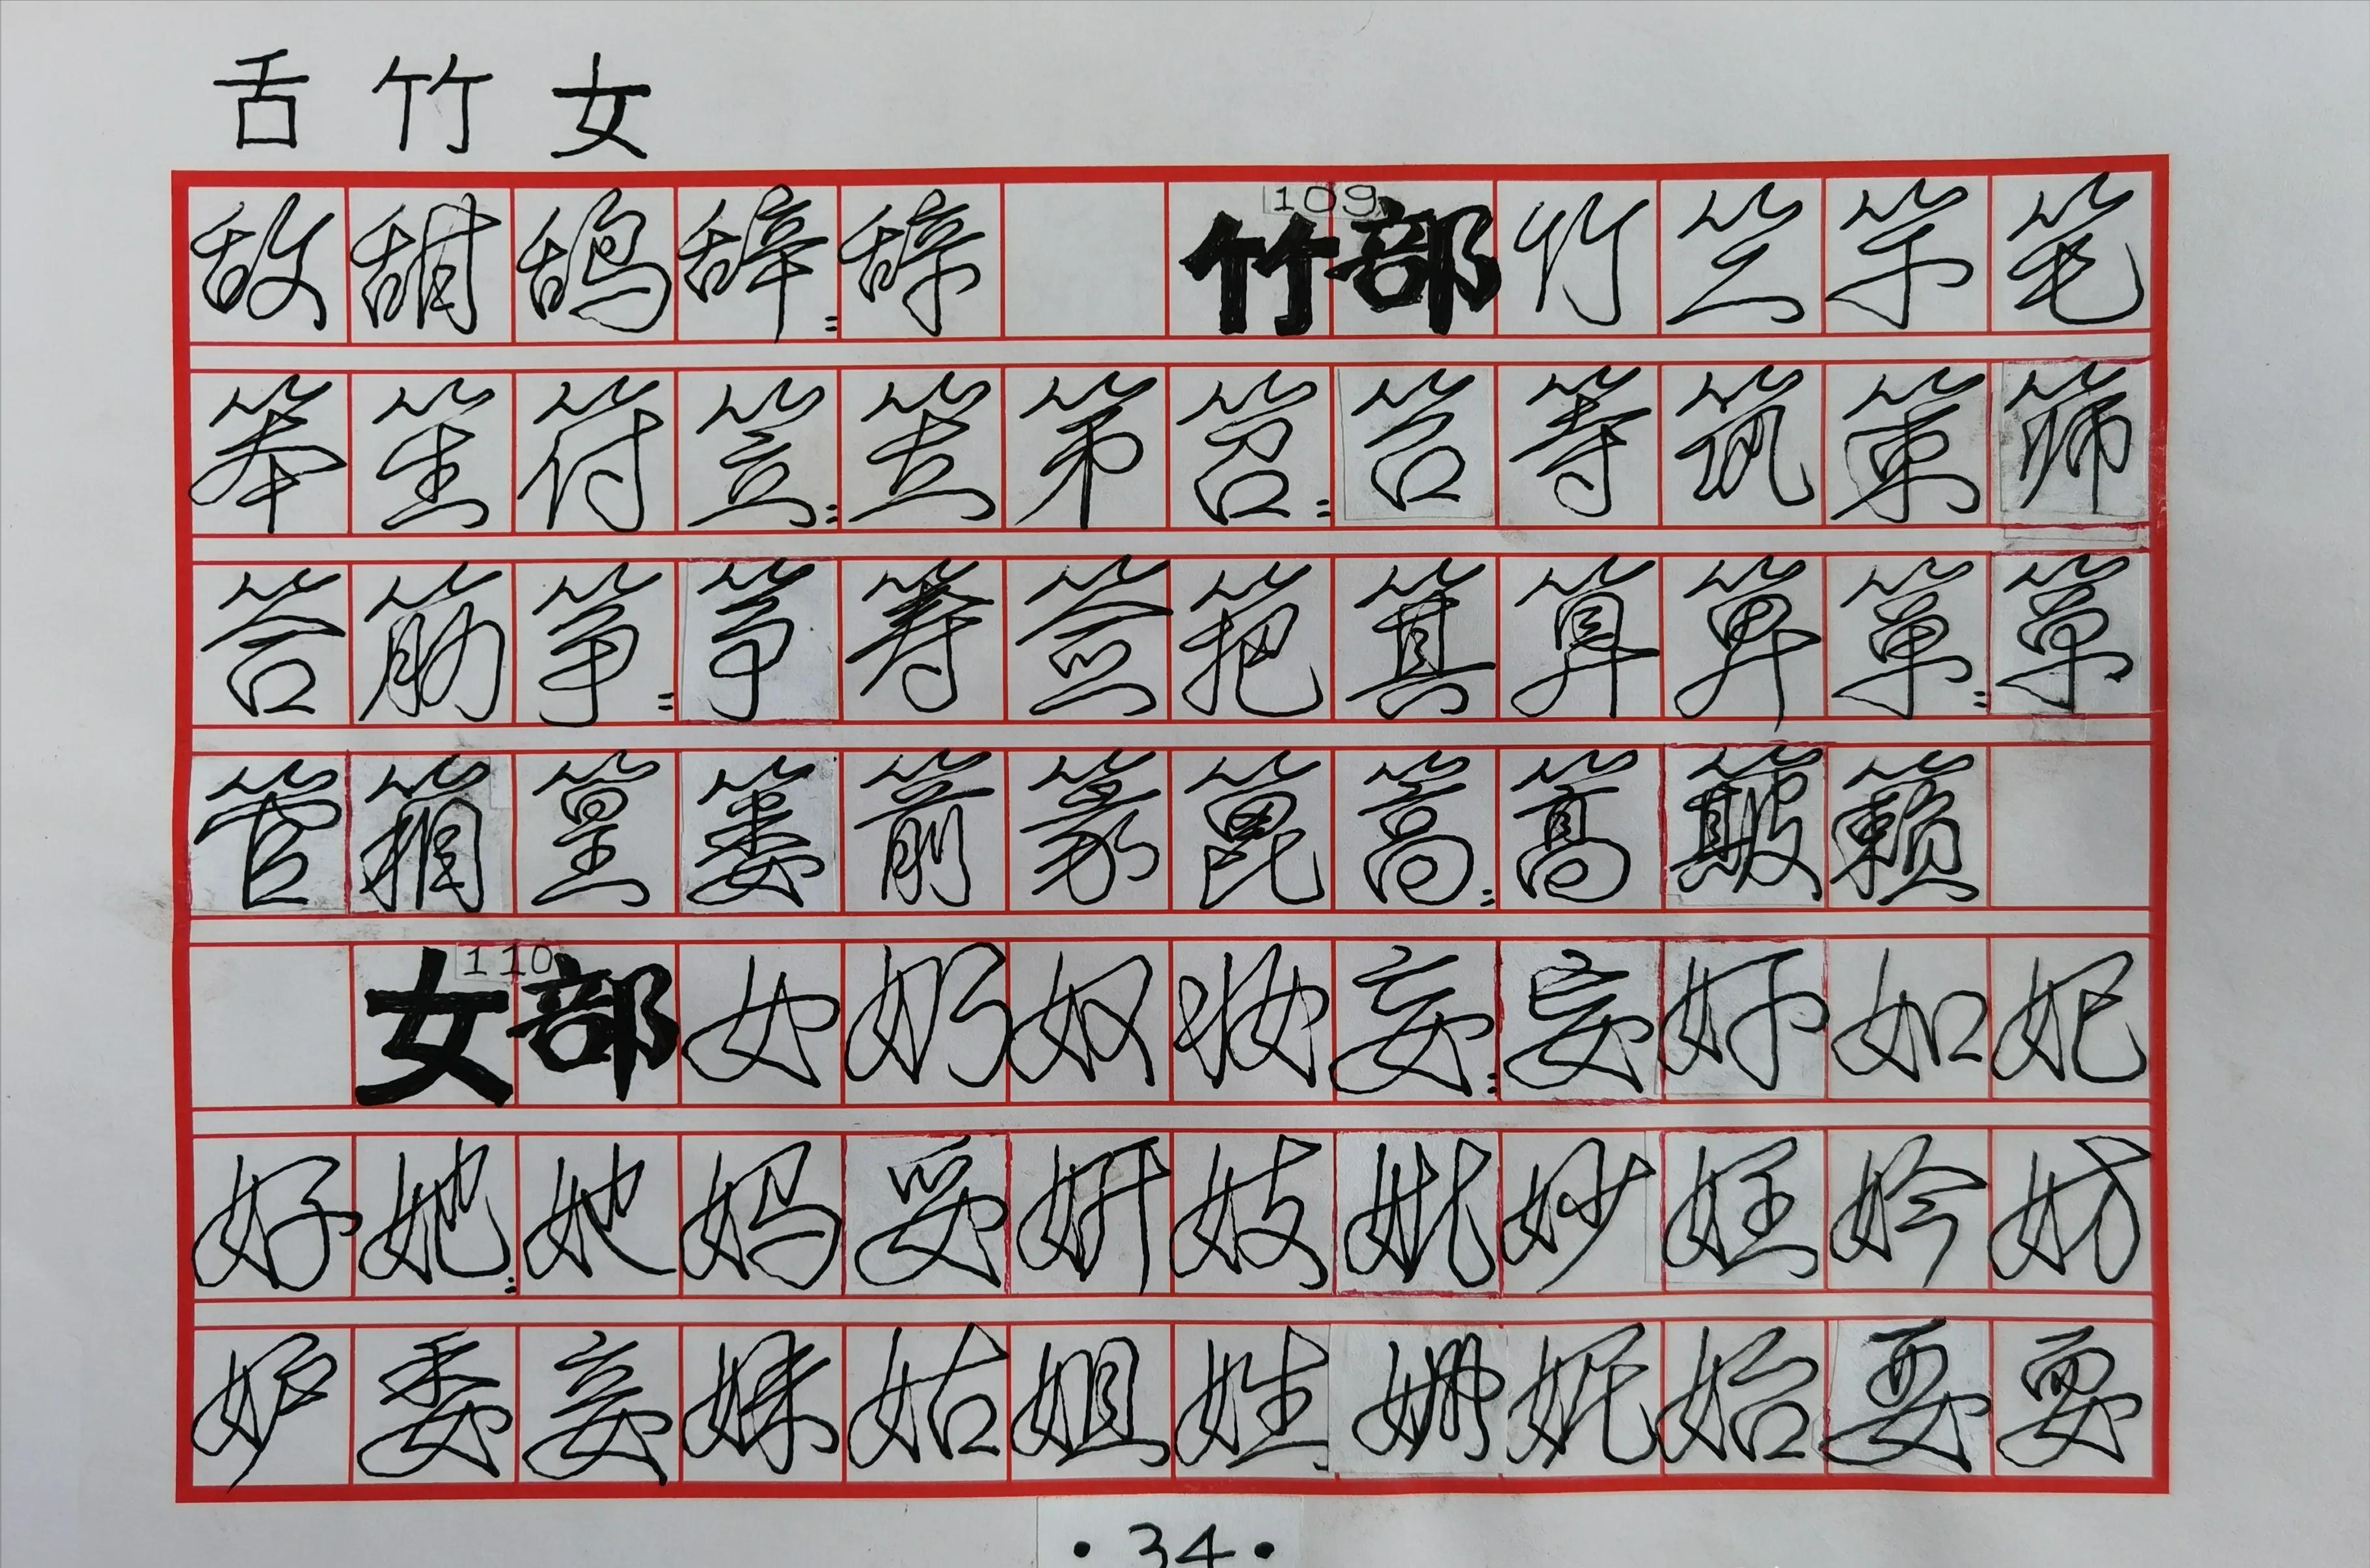 舌 竹 女
敌 甜 鸹 辞= 辞 109 竹部 竹 竺 竿 笔
笨 笙 符 笠= 笠 第 笤= 笤 等 筑 策 筛
答 筋 筝= 筝 筹 签 筢 箕 算 箅 箪= 箪
管 箱 篁 篓 箭 篆 篦 篙= 篙 簸 籁
110 女部 女 奶 奴 妆 妄= 妄 奸 如 妃
好 她= 她 妈 妥 妍 妓 妣 妙 妊 妗 妨
妒 委 妾 妹 姑 姐 姓 姗 妮 始 要 要
·34·